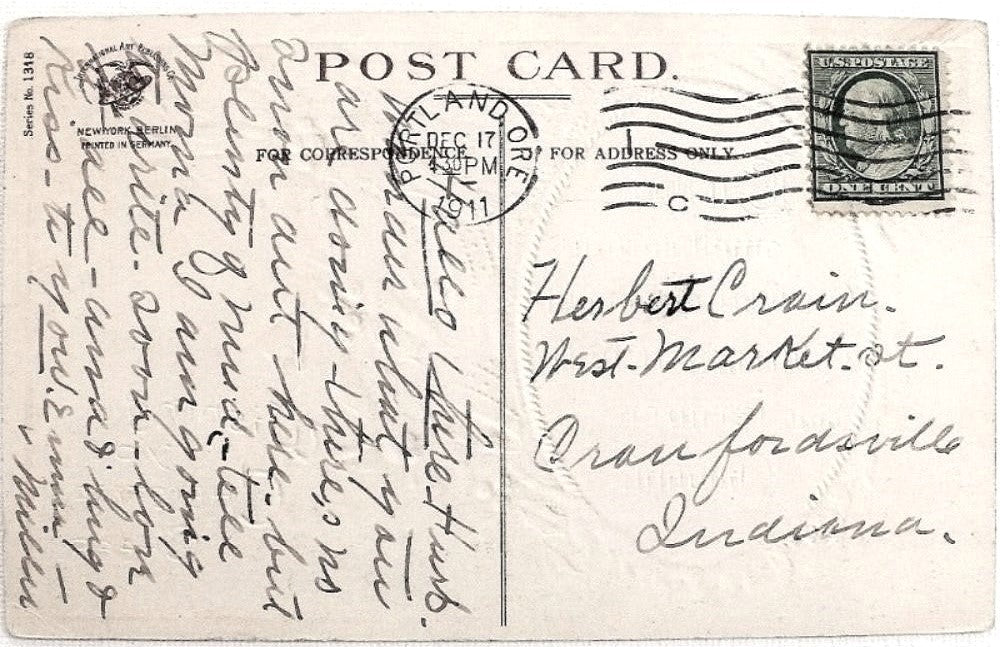 Series No. 1318
INTERNATIONAL ART PUBLISHING CO.
NEW YORK BERLIN
PRINTED IN GERMANY.
POST CARD.
FOR CORRESPONDENCE
FOR ADDRESS ONLY.
PORTLAND, ORE
DEC 17
4 30 PM
1911
C
U.S. POSTAGE
ONE CENT
Hello there, Hurb.
Wonder what you
are doing there,
here - but
Plenty of mud - tell
Mona am going
to write soon -
see - and hug &
Kiss - to you. Emma -
Miller
Herbert Crain.
West. Market. st.
Crawfordsville
Indiana.